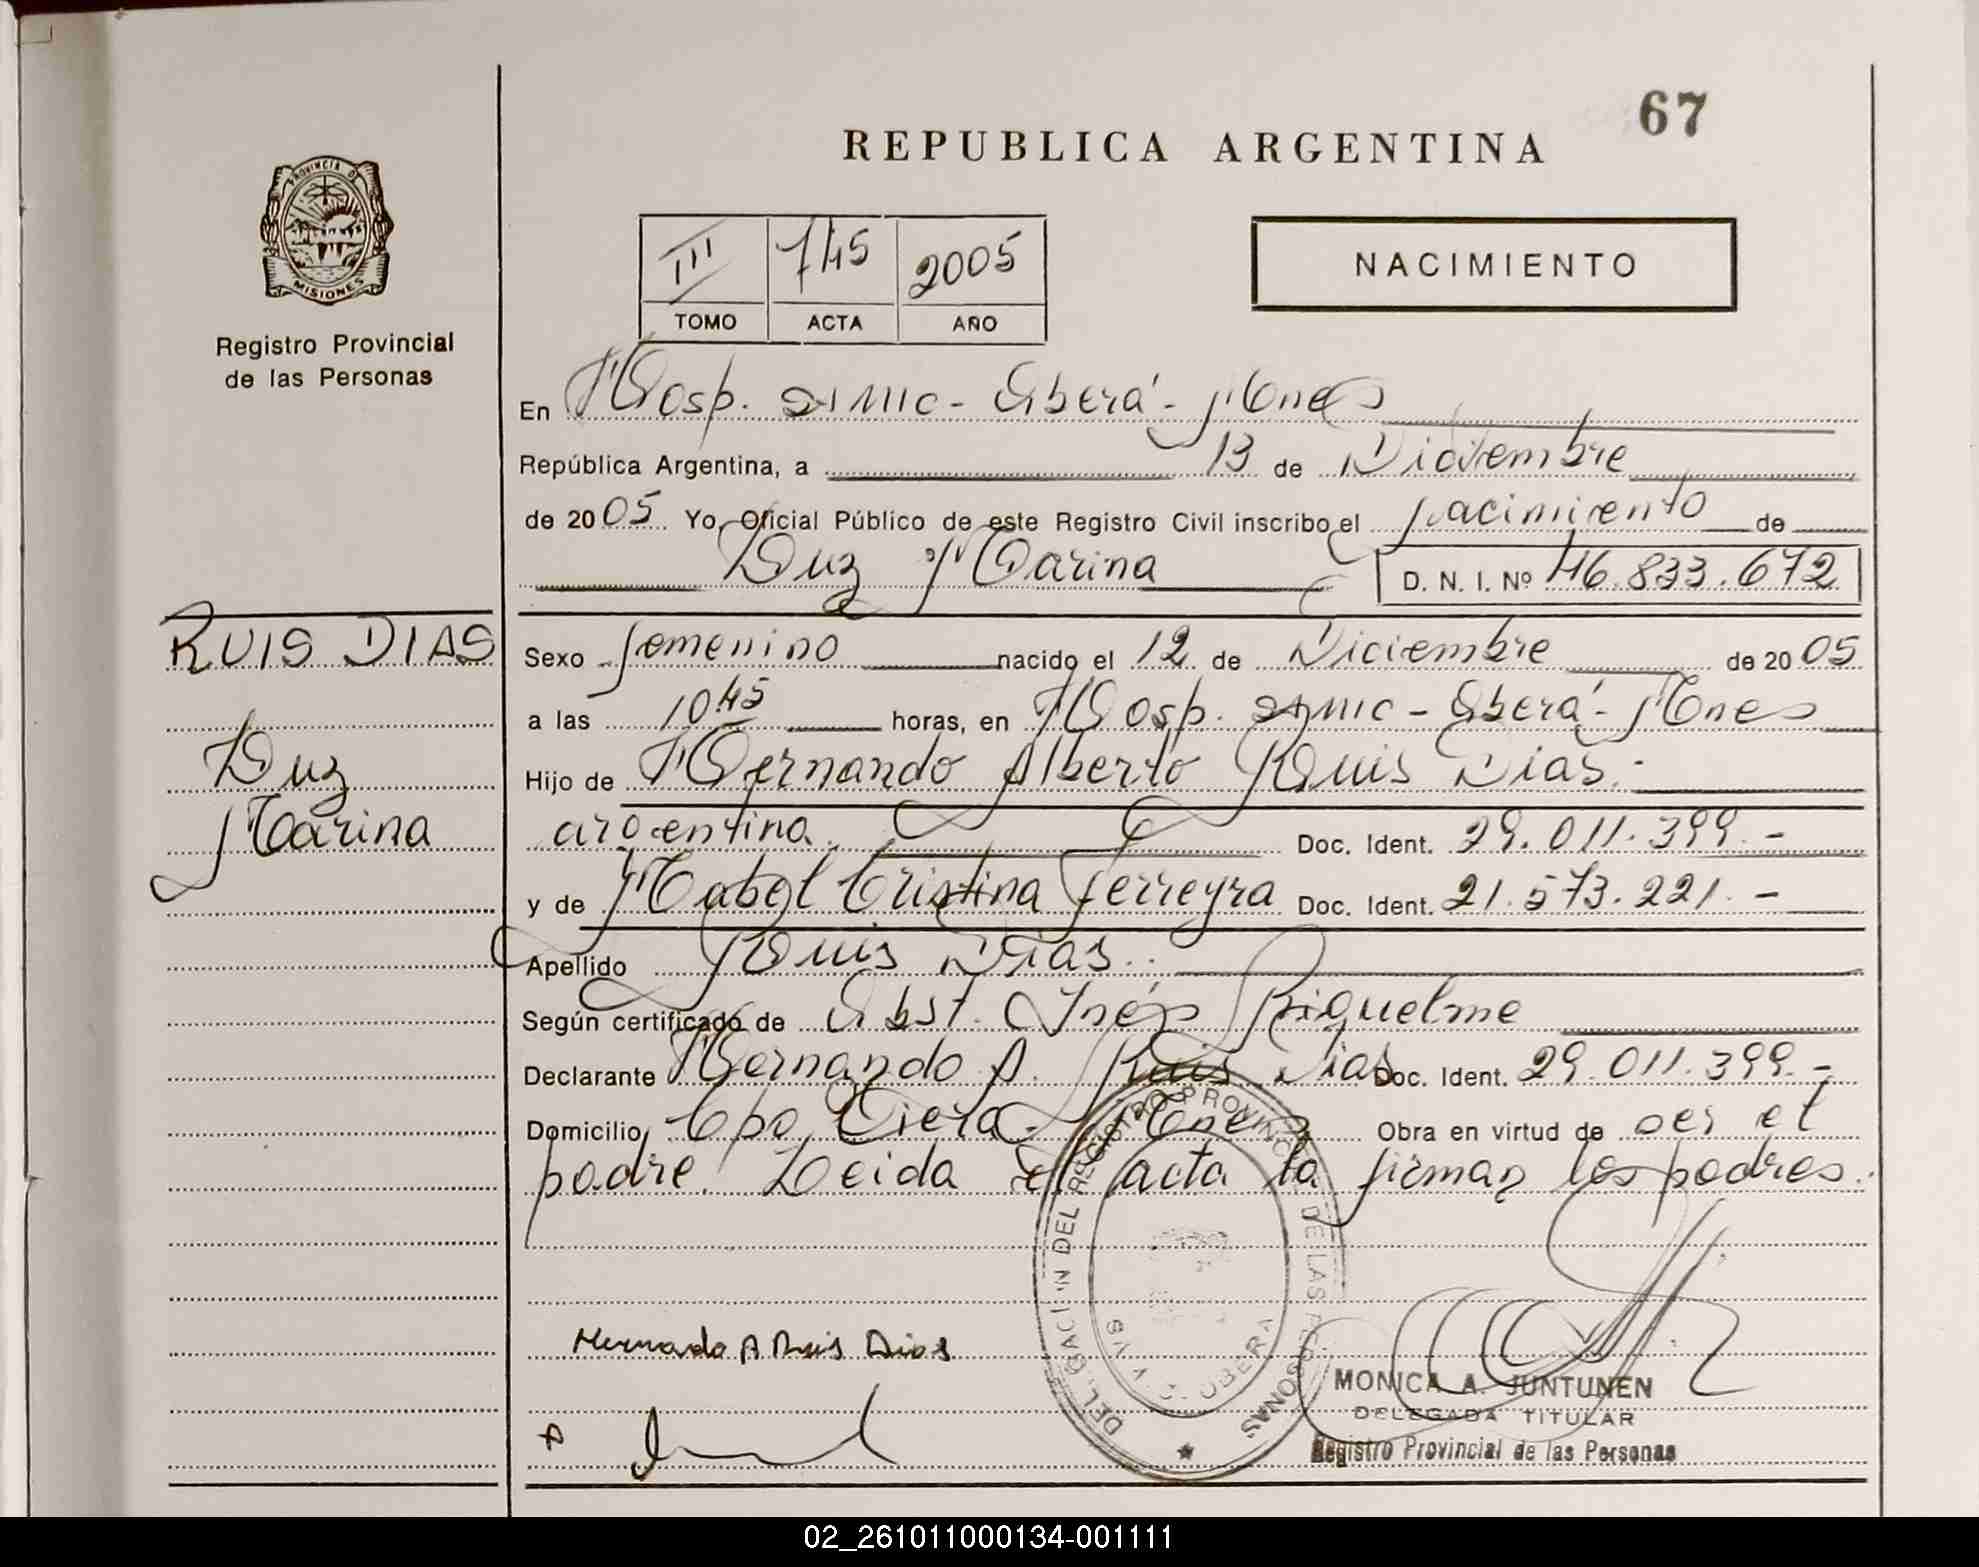 67
REPUBLICA ARGENTINA
PROVINCIA DE
MISIONES
Registro Provincial
de las Personas
III 745 2005
TOMO ACTA AÑO
NACIMIENTO
En Hosp. SAMIC - Oberá - Mnes
República Argentina, a 13 de Diciembre
de 2005 Yo, Oficial Público de este Registro Civil inscribo el nacimiento de
Luz Marina D. N. I. Nº 46.833.672
RUIS DIAS
Luz
Marina
Sexo femenino nacido el 12 de Diciembre de 2005
a las 10 45 horas, en Hosp. SAMIC - Oberá - Mnes
Hijo de Hernando Alberto Ruis Dias.-
argentina Doc. Ident. 29.011.399.-
y de Mabel Cristina Ferreyra Doc. Ident. 21.573.221.-
Apellido Ruis Dias.
Según certificado de Obst. Inés Riquelme
Declarante Hernando A. Ruis Dias Doc. Ident. 29.011.399.-
Domicilio Cpo Viera - Mnes Obra en virtud de ser el
padre. Leida el acta la firman los padres.
Hernando A Ruis Dias
DEL REGISTRO PROVINCIAL DE LAS PERSONAS
OBERA
MONICA A. JUNTUNEN
DELEGADA TITULAR
Registro Provincial de las Personas
02_261011000134-001111